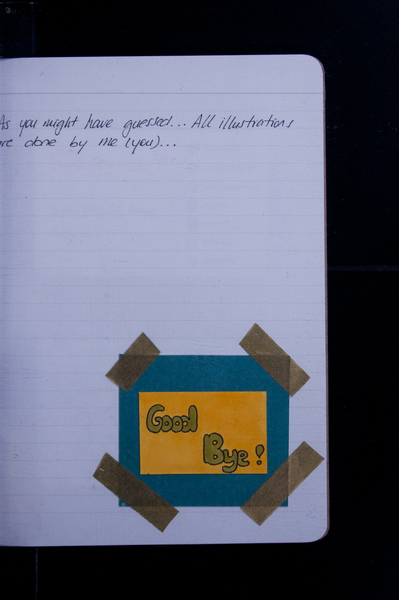 As you might have guessed... All illustrations
are done by me (you)...
Good
Bye!